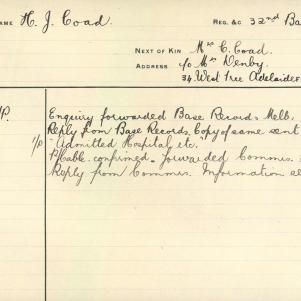 NAME H. J. Coad REG. &c 32nd Ba
NEXT OF KIN Mrs C. Coad.
ADDRESS c/o Mrs Denby.
34 West Tce Adelaide
P. Enquiry forwarded Base Records Melb.
Reply from Base Records. Copy of same sent
"Admitted Hospital etc.
Cable confirmed. Forwarded Commis.
Reply from Commis. Information